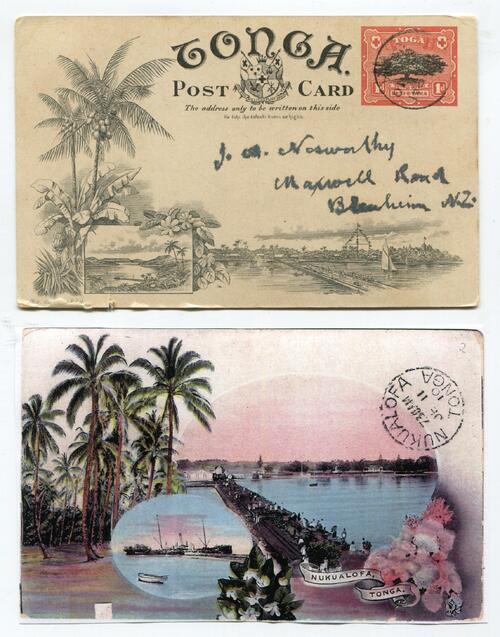 TONGA.
POST CARD
The address only to be written on this side
TOGA
1D 1D
J. A. Nosworthy
Maxwell Road
Blenheim N.Z.
2
NUKUALOFA
730AM
11
TONGA
NUKUALOFA,
TONGA.